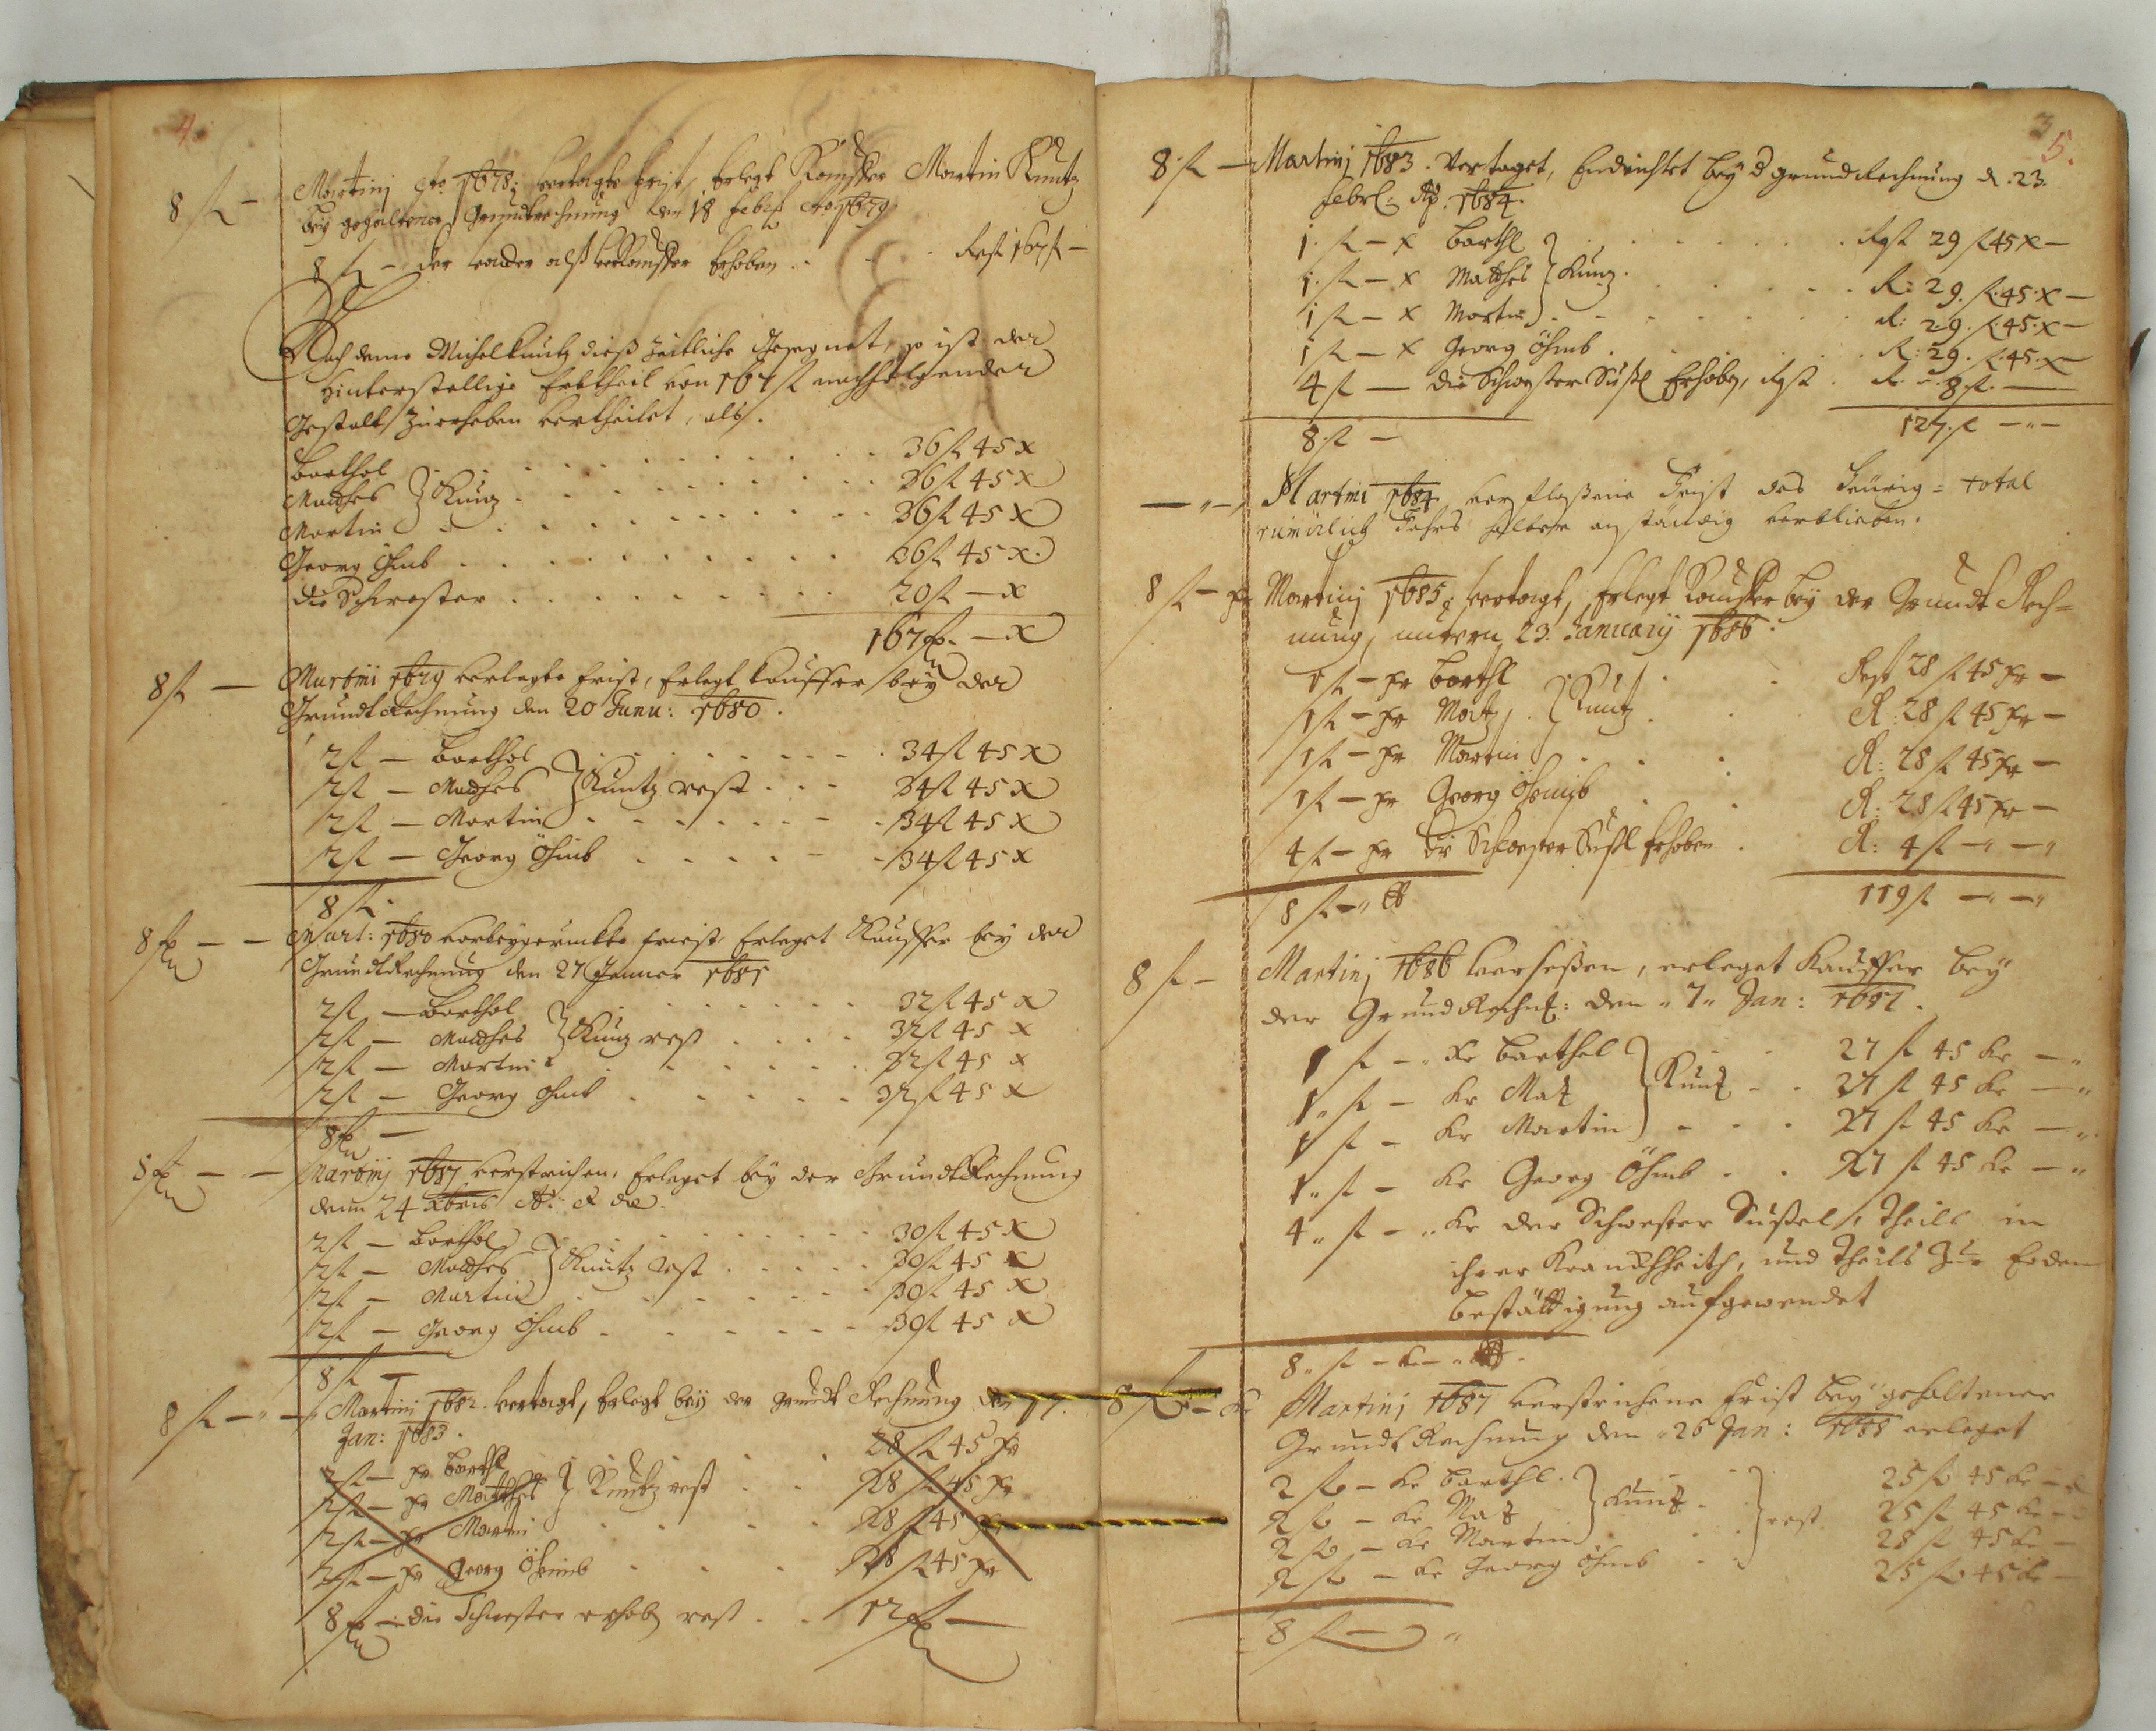 4.
8 fl — Martinj Ao 1678: vertagte frist, Erlegt Kauffer Martin Kuntz
bey gehaltener Grundtrechnung den 18 febr: Ao 1679
8 fl — der Vatter alß verkauffer Erhoben . . . Rest 167 fl —
Nach deme Michel Kuntz dieß Zeitliche Gesegnet, so ist der
hinterstellige Erbtheil von 167 fl nachfolgender
Gestalt zu erheben vertheilet, als.
Barthol . . . 36 fl 45 x
Mathes } Kunz . . . 36 fl 45 x
Martin . . . 36 fl 45 x
Georg Öhmb . . . 36 fl 45 x.
die Schwester . . . 20 fl — x
167 fl. — x
8 fl — Martini 1679 vertagte frist, Erlegt Kauffer bey der
Grundt Rechnung den 20 Janu: 1680.
2 fl — Barthol . . . 34 fl 45 x
2 fl — Mathes } Kuntz rest . . . 34 fl 45 x
2 fl — Martin . . . 34 fl 45 x
2 fl — Georg Öhmb . . . 34 fl 45 x
8 fl.
8 fl — — Mart: 1680 vorbeygerukte friest, Erleget Kauffer bey der
Grundt Rechnung den 27 Jenner 1681
2 fl — Barthol . . . 32 fl 45 x
2 fl — Mathes } Kunz rest . . . 32 fl 45 x
2 fl — Martin . . . 32 fl 45 x
2 fl — Georg Öhmb . . . 32 fl 45 x
8 fl —
8 fl — — Martinj 1681 verstrichen, Erleget bey der Grundt Rechnung
denn 24 xbris
2 fl — Barthol . . . 30 fl 45 x
2 fl — Mathes } Kuntz rest . . . 30 fl 45 x
2 fl — Martin . . . 30 fl 45 x
2 fl — Georg Öhmb . . . 30 fl 45 x
8 fl —
8 fl — " — Martini 1682 vertagt, Erlegt bey der grundt Rechnung den 17.
Jan: 1683.
2 fl — kr Barthl . . . 28 fl 45 kr
2 fl — kr Matthes } Kuntz rest . . . 28 fl 45 kr
2 fl — kr Martin . . . 28 fl 45 kr
2 fl — kr Georg Öhmb . . . 28 fl 45 kr
8 fl — die Schwester erhob rest . . 12 fl —
5.
8 fl — Martinj 1683. Vertaget, Endrichtet bey d grund Rechnung d. 23.
febr. Ao. 1684.
1. fl — x Barthl . . . Rest 29 fl 45 x —
1. fl — x Matthes } Kunz. . . . R: 29. fl. 45. x —
1 fl — x Martin . . . R: 29. fl. 45. x —
1 fl — x Georg Öhmb . . . R: 29. fl. 45. x —
4 fl — die Schwester Sußl Erhoben, Rest . R. 8 fl. —
8 fl — 127. fl — " —
— " — Martini 1684 verfloßene Frist des = total
Jahrs halber anständig verblieben.
8 fl — kr Martinj 1685: vertagt, Erlegt Kauffer bey der Grundt Rech=
nung, unterm 23. January 1686.
1 fl — kr Barthl . . . Rest 28 fl 45 kr —
1 fl — kr Matz } Kuntz . . . R: 28 fl 45 kr —
1 fl — kr Martin . . . R: 28 fl 45 kr —
1 fl — kr Georg Öhmb . . . R: 28 fl 45 kr —
4 fl — kr die Schwester Sußl Erhoben . R: 4 fl — " — "
8 fl — " 119 fl — " — "
8 fl — Martinj 1686 verseßen, erleget Kauffer bey
der Grund Rechn: den " 7 " Jan: 1687.
1 fl — " kr Barthel . . . 27 fl 45 kr — "
1 " fl — kr Matz } Kuntz . . 27 fl 45 kr — "
1 fl — kr Martin . . . 27 fl 45 kr — "
1 " fl — kr Georg Öhmb . . 27 fl 45 kr — "
4 " fl — " kr der Schwester Sußel, theils in
ihrer Krankhheith, und theils zur Erden
bestättigung aufgewendet
8 " fl — kr —
8 fl — kr Martinj 1687 verstrichene frist bey gehaltener
Grundt Rechnung den " 26 Jan: 1688 erleget
2 fl — kr Barthl . . . 25 fl 45 kr —
2 fl — kr Matz } Kuntz . } rest. 25 fl 45 kr —
2 fl — kr Martin . . . 25 fl 45 kr —
2 fl — kr Georg Öhmb . . 25 fl 45 kr —
8 fl — "